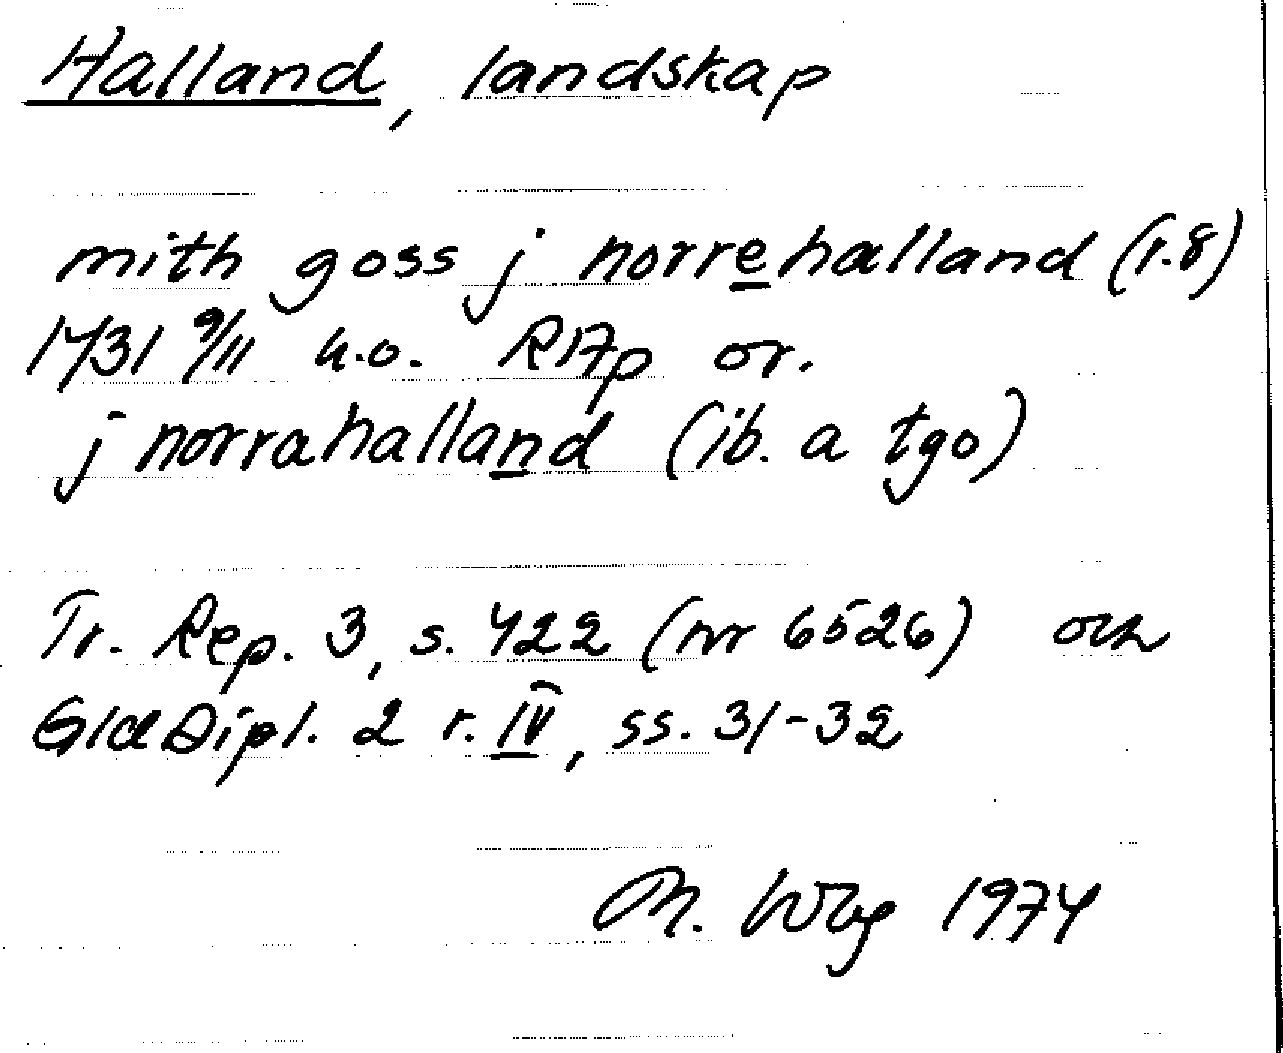 Halland, landskap
mith goss j norrehalland (r.8)
1431 9/11 u.o. RAp or.
j norrahalland (ib. a tgo)
Tr. Rep. 3, s. 422 (nr 6526) och
GldDipl. 2 r. IV, ss. 31-32
M. Wbg 1974